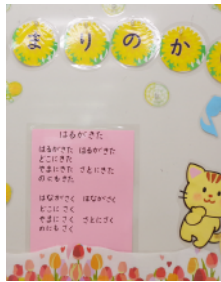 まりのか
はるがきた
はるがきた　はるがきた
どこにきた
やまにきた　さとにきた
のにもきた
はながさく　はながさく
どこにさく
やまにさく　さとにさく
のにもさく